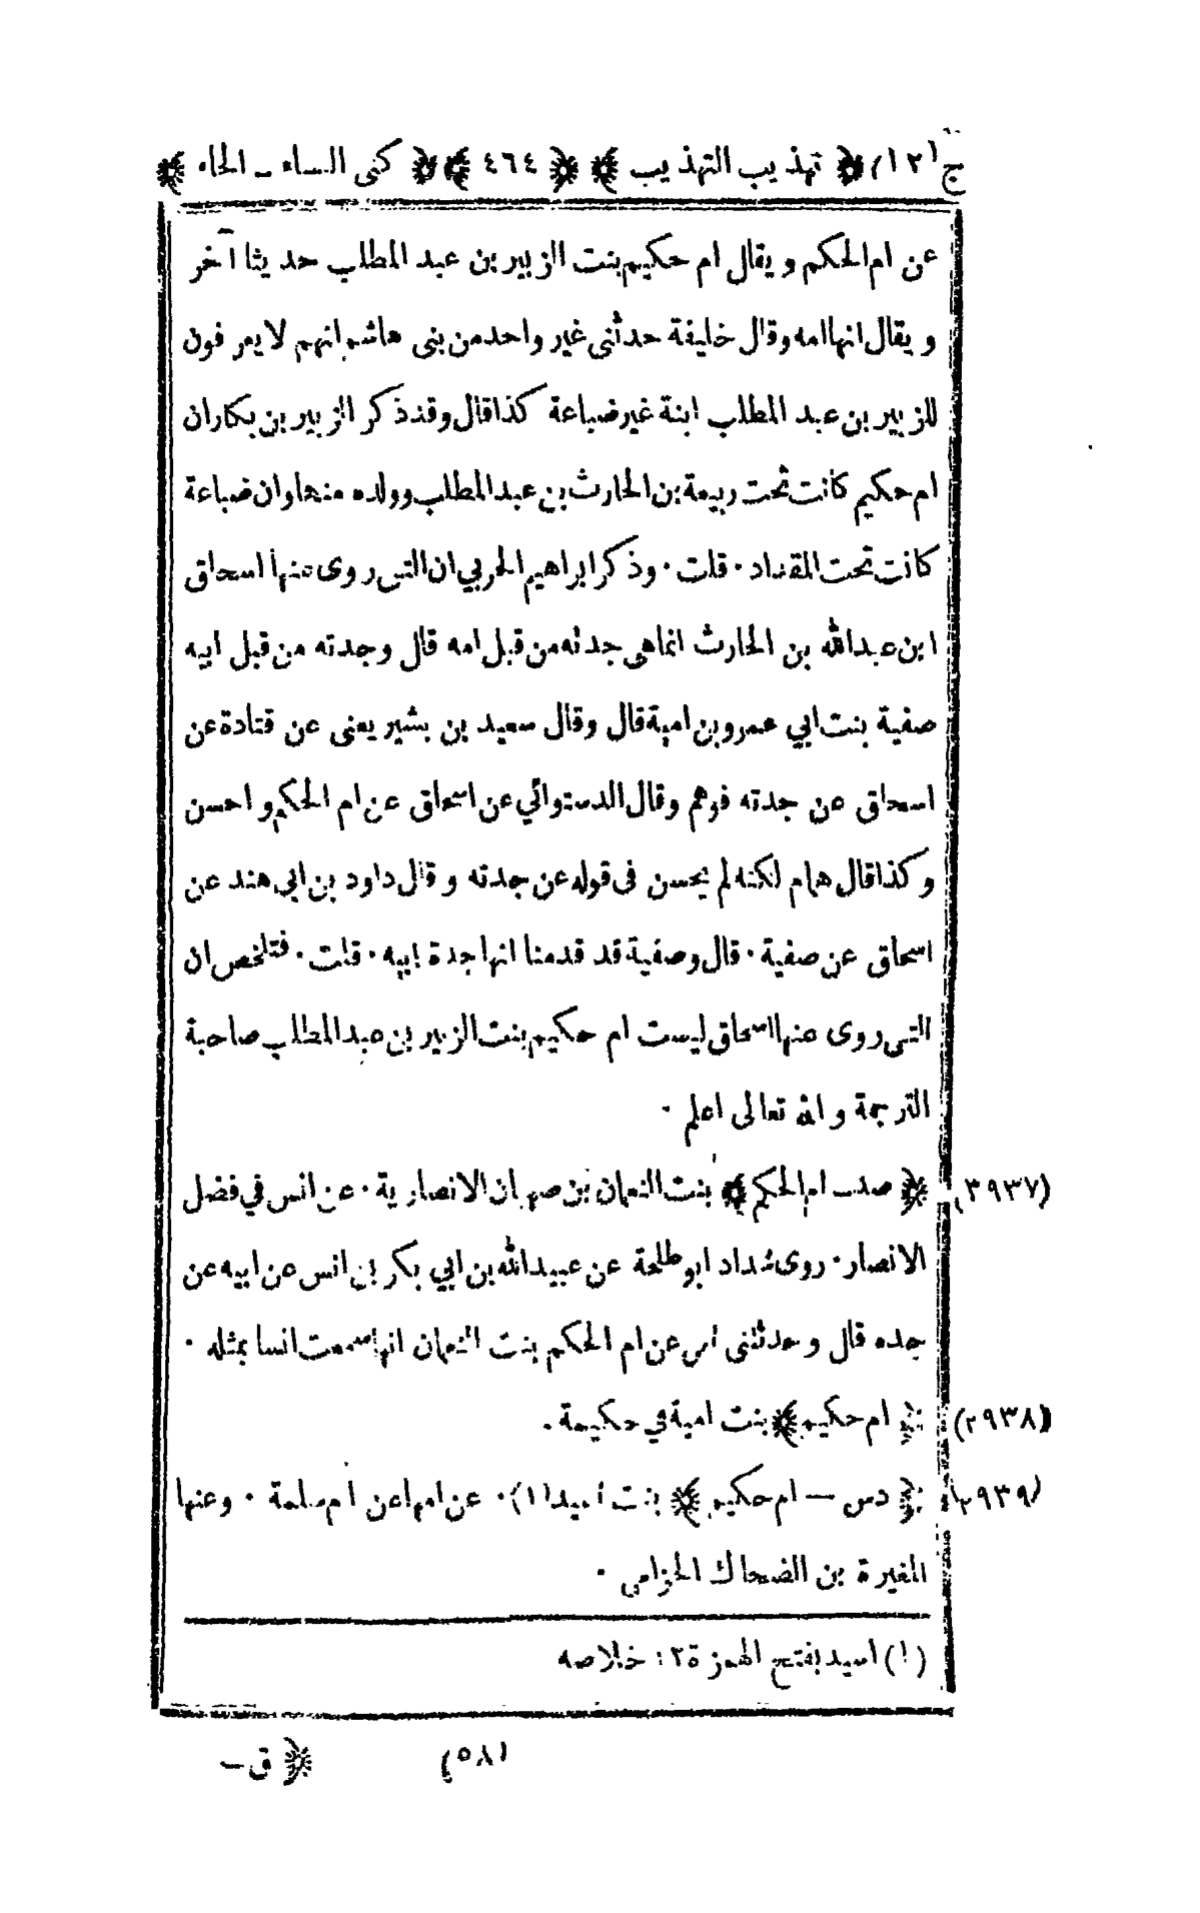 ج(١٢) ﴿ تهذيب التهذيب ﴾ ﴿ ٤٦٤ ﴾ ﴿ كنى النساء ـ الحاء ﴾
عن ام الحكم و يقال ام حكيم بنت الزبير بن عبد المطلب حديثا آخر
و يقال انها امه وقال خليفة حدثنى غير واحد من بنى هاشم انهم لا يعرفون
للزبير بن عبد المطلب ابنة غير ضباعة كذا قال وقد ذكر الزبير بن بكار ان
ام حكيم كانت تحت ربيعة بن الحارث بن عبد المطلب وولده منها وان ضباعة
كانت تحت المقداد · قلت · وذكر ابراهيم الحربي ان التى روى عنها اسحاق
ابن عبد الله بن الحارث انما هى جدته من قبل امه قال وجدته من قبل ابيه
صفية بنت ابي عمرو بن امية قال وقال سعيد بن بشير يعنى عن قتادة عن
اسحاق عن جدته فوهم وقال الدستوائي عن اسحاق عن ام الحكم و احسن
وكذا قال همام لكنه لم يحسن فى قوله عن جدته و قال داود بن ابي هند عن
اسحاق عن صفية · قال وصفية قد قدمنا انها جدة ابيه · قلت · فتلخص ان
التى روى عنها اسحاق ليست ام حكيم بنت الزبير بن عبد المطلب صاحبة
الترجمة و الله تعالى اعلم ·
(٢٩٣٧) ﴿ صد ـ ام الحكم ﴾ بنت النعمان بن صهبان الانصارية · عن انس في فضل
الانصار · روى شداد ابو طلحة عن عبيد الله بن ابي بكر بن انس عن ابيه عن
جده قال و حدثتنى امى عن ام الحكم بنت النعمان انها سمعت انسا بمثله ·
(٢٩٣٨) ﴿ ام حكيم ﴾ بنت امية في حكيمة ·
(٢٩٣٩) ﴿ دس — ام حكيم ﴾ بنت أسيد(١) · عن امها عن ام سلمة · وعنها
المغيرة بن الضحاك الحزامى ·
(١) اسيد بفتح الهمزة ١٢ خلاصه
(٥٨) ﴿ ق ـ